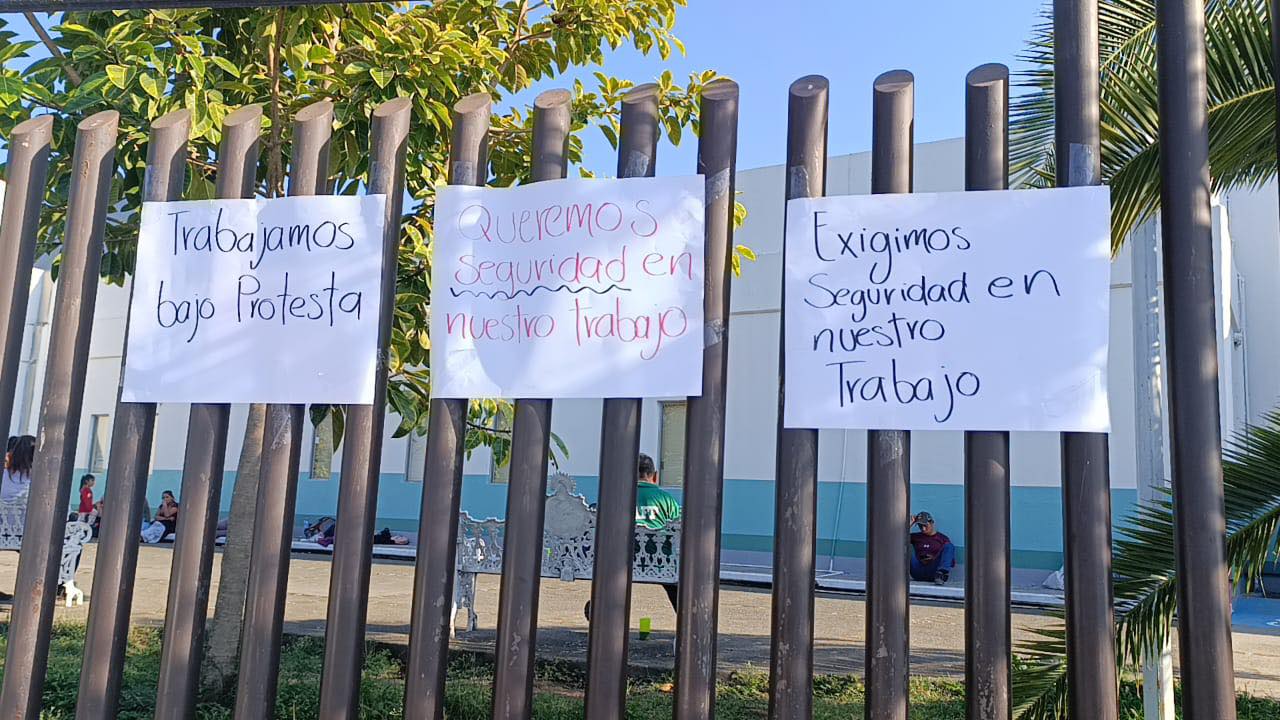 Trabajamos
bajo Protesta
Queremos
Seguridad en
nuestro trabajo
Exigimos
Seguridad en
nuestro
Trabajo